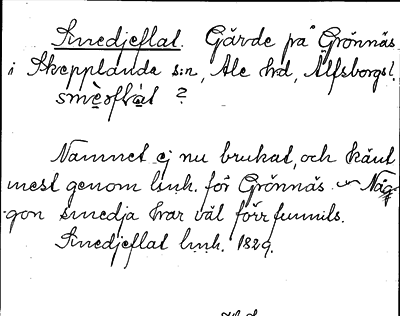 Smedjeflat. Gärde på Grönnäs
i Skepplanda s:n, Ale hd, Älfsborgs l.
smèoflàt ?
Namnet ej nu brukat, och känt
mest genom lmh. för Grönnäs. Någ-
gon smedja har väl förr funnits.
Smedjeflat lmh. 1829.